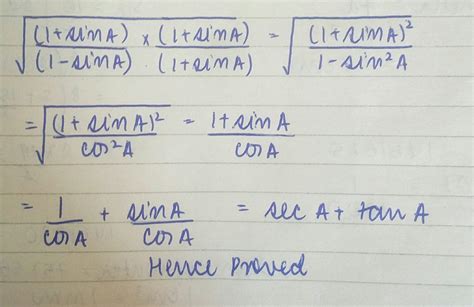 √((1+sinA)/(1-sinA) × (1+sinA)/(1+sinA)) = √((1+sinA)²/(1-sin²A))
= √((1+sinA)²/cos²A) = (1+sinA)/cosA
= 1/cosA + sinA/cosA = secA + tanA
Hence Proved